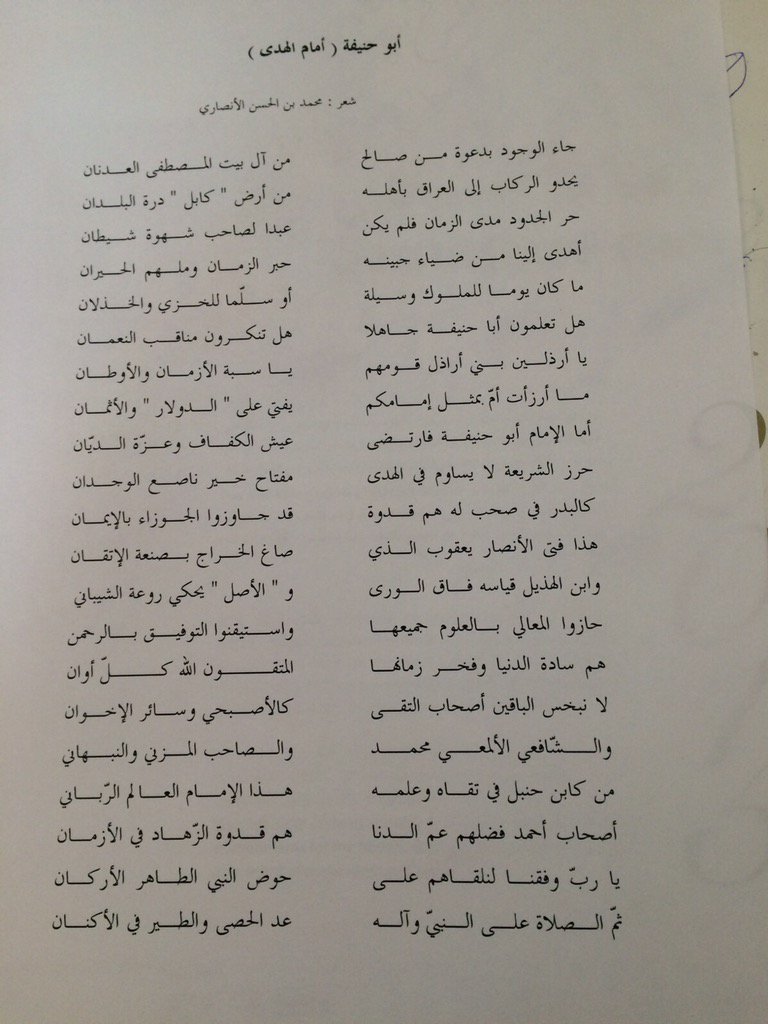 أبو حنيفة ( أمام الهدى )
شعر : محمد بن الحسن الأنصاري
جاء الوجود بدعوة من صالح من آل بيت المصطفى العدنان
يحدو الركاب إلى العراق بأهله من أرض " كابل " درة البلدان
حر الجدود مدى الزمان فلم يكن عبدا لصاحب شهوة شيطان
أهدى إلينا من ضياء جبينه حبر الزمان وملهم الحيران
ما كان يوما للملوك وسيلة أو سلّما للخزي والخذلان
هل تعلمون أبا حنيفة جاهلا هل تنكرون مناقب النعمان
يا أرذلين بني أراذل قومهم يا سبة الأزمان والأوطان
ما أرزأت أمّ بمثل إمامكم يفتي على " الدولار " والأثمان
أما الإمام أبو حنيفة فارتضى عيش الكفاف وعزّة الديّان
حرز الشريعة لا يساوم في الهدى مفتاح خير ناصع الوجدان
كالبدر في صحب له هم قدوة قد جاوزوا الجوزاء بالإيمان
هذا فتى الأنصار يعقوب الذي صاغ الخراج بصنعة الإتقان
وابن الهذيل قياسه فاق الورى و " الأصل " يحكي روعة الشيباني
حازوا المعالي بالعلوم جميعها واستيقنوا التوفيق بالرحمن
هم سادة الدنيا وفخر زمانها المتقون الله كلّ أوان
لا نبخس الباقين أصحاب التقى كالأصبحي وسائر الإخوان
والشّافعي الألمعي محمد والصاحب المزني والنبهاني
من كابن حنبل في تقاه وعلمه هذا الإمام العالم الرّباني
أصحاب أحمد فضلهم عمّ الدنا هم قدوة الزّهاد في الأزمان
يا ربّ وفقنا لنلقاهم على حوض النبي الطاهر الأركان
ثمّ الصلاة على النبيّ وآله عد الحصى والطير في الأكنان